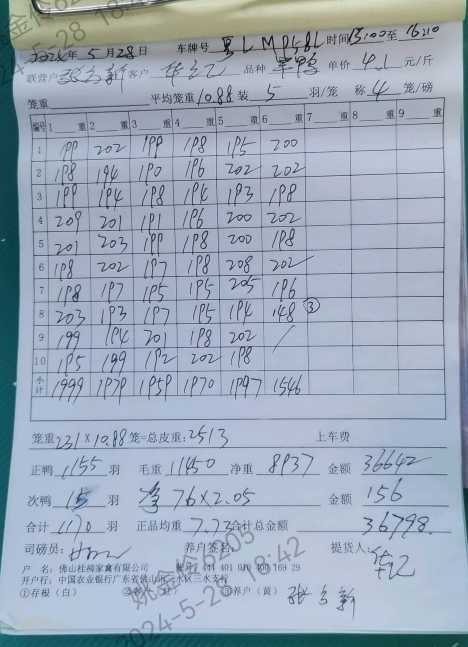 2024年5月28日 车牌号 时间 15:00至16:10
联营户 张 新 客户 华 记 品种 单价 4.1 元/斤
笼重 平均笼重 10.88 装 5 羽/笼 称 4 笼/磅
编号 1 重 2 重 3 重 4 重 5 重 6 重 7 重 8 重 9 重
1 199 202 199 198 195 200
2 198 194 190 196 202 202
3 199 194 198 194 193 198
4 209 201 191 196 200 202
5 201 203 199 198 200 198
6 198 202 197 198 208 202
7 198 197 195 195 205 196
8 203 193 197 195 194 148 ③
9 199 194 201 198 202 /
10 195 199 192 202 198
小计 1999 1979 1959 1970 1997 1546
笼重 231×10.88 笼=总皮重:2513 上车费
正鸭 1155 羽 毛重 11450 净重 8937 金额 36642
次鸭 15 羽 76×2.05 金额 156
合计 1170 羽 正品均重 7.73 合计总金额 36798.
司磅员: 养户签名: 提货人: 华记
户 名:佛山桂柳家禽有限公司
开户行:中国农业银行广东省佛山 三水区三水支行
①存根(白) ③养户(黄) 张 新
2024-5-28 18:42